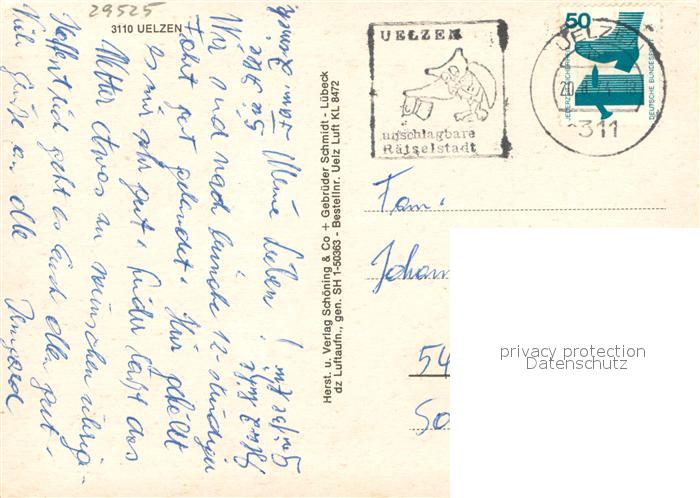 29525
3110 UELZEN
Meine Lieben!
Wir sind nach beinahe 12-stündiger
Fahrt gut gelandet. Hier gefällt
es mir sehr gut, leider läßt das
Wetter etwas zu wünschen übrig.
Hoffentlich geht es Euch allen gut.
Viele Grüße an alle
Irmgard
Herst. u. Verlag Schöning & Co + Gebrüder Schmidt - Lübeck
dz Luftaufn., gen. SH 1-50363 - Bestellnr. Uelz Luft KL 8472
UELZEN
unschlagbare
Rätselstadt
UELZEN
311
50
JEDERZEIT SICHERHEIT
DEUTSCHE BUNDESPOST
Fam.
Johan
54
privacy protection
Datenschutz